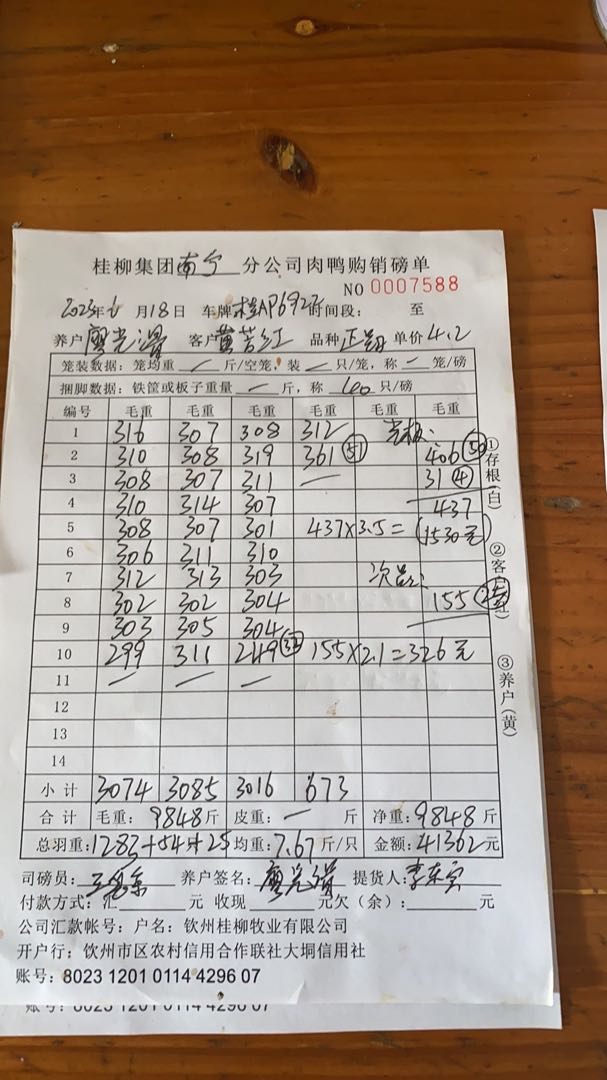 桂柳集团南宁分公司肉鸭购销磅单
NO 0007588
2023年6月18日 车牌桂AP6927 时间段： 至
养户廖光 客户黄苦红 品种正 单价4.2
笼装数据：笼均重 — 斤/空笼，装 — 只/笼，称 — 笼/磅
捆脚数据：铁筐或板子重量 — 斤，称 40 只/磅
编号 毛重 毛重 毛重 毛重 毛重 毛重
1 316 307 308 312 光板：
2 310 308 319 361 (51) 406
3 308 307 311 — 31 (4)
4 310 314 307 437
5 308 307 301 437×3.5= (1530元)
6 306 311 310
7 312 313 303 次品：
8 302 302 304 155
9 303 305 304
10 299 311 249 155×2.1=326元
11 — — —
12
13
14
小计 3074 3085 3016 673
合计 毛重：9848斤 皮重：— 斤 净重：9848斤
总羽重：1283+54+25 均重：7.67斤/只 金额：41362元
司磅员： 养户签名：廖光 提货人：李东
付款方式：汇 元 收现 元欠（余）： 元
公司汇款帐号：户名：钦州桂柳牧业有限公司
开户行：钦州市区农村信用合作联社大垌信用社
账号：8023 1201 0114 4296 07
①存根（白）
②客
③养户（黄）
账号：8023 1201 0114 4296 07